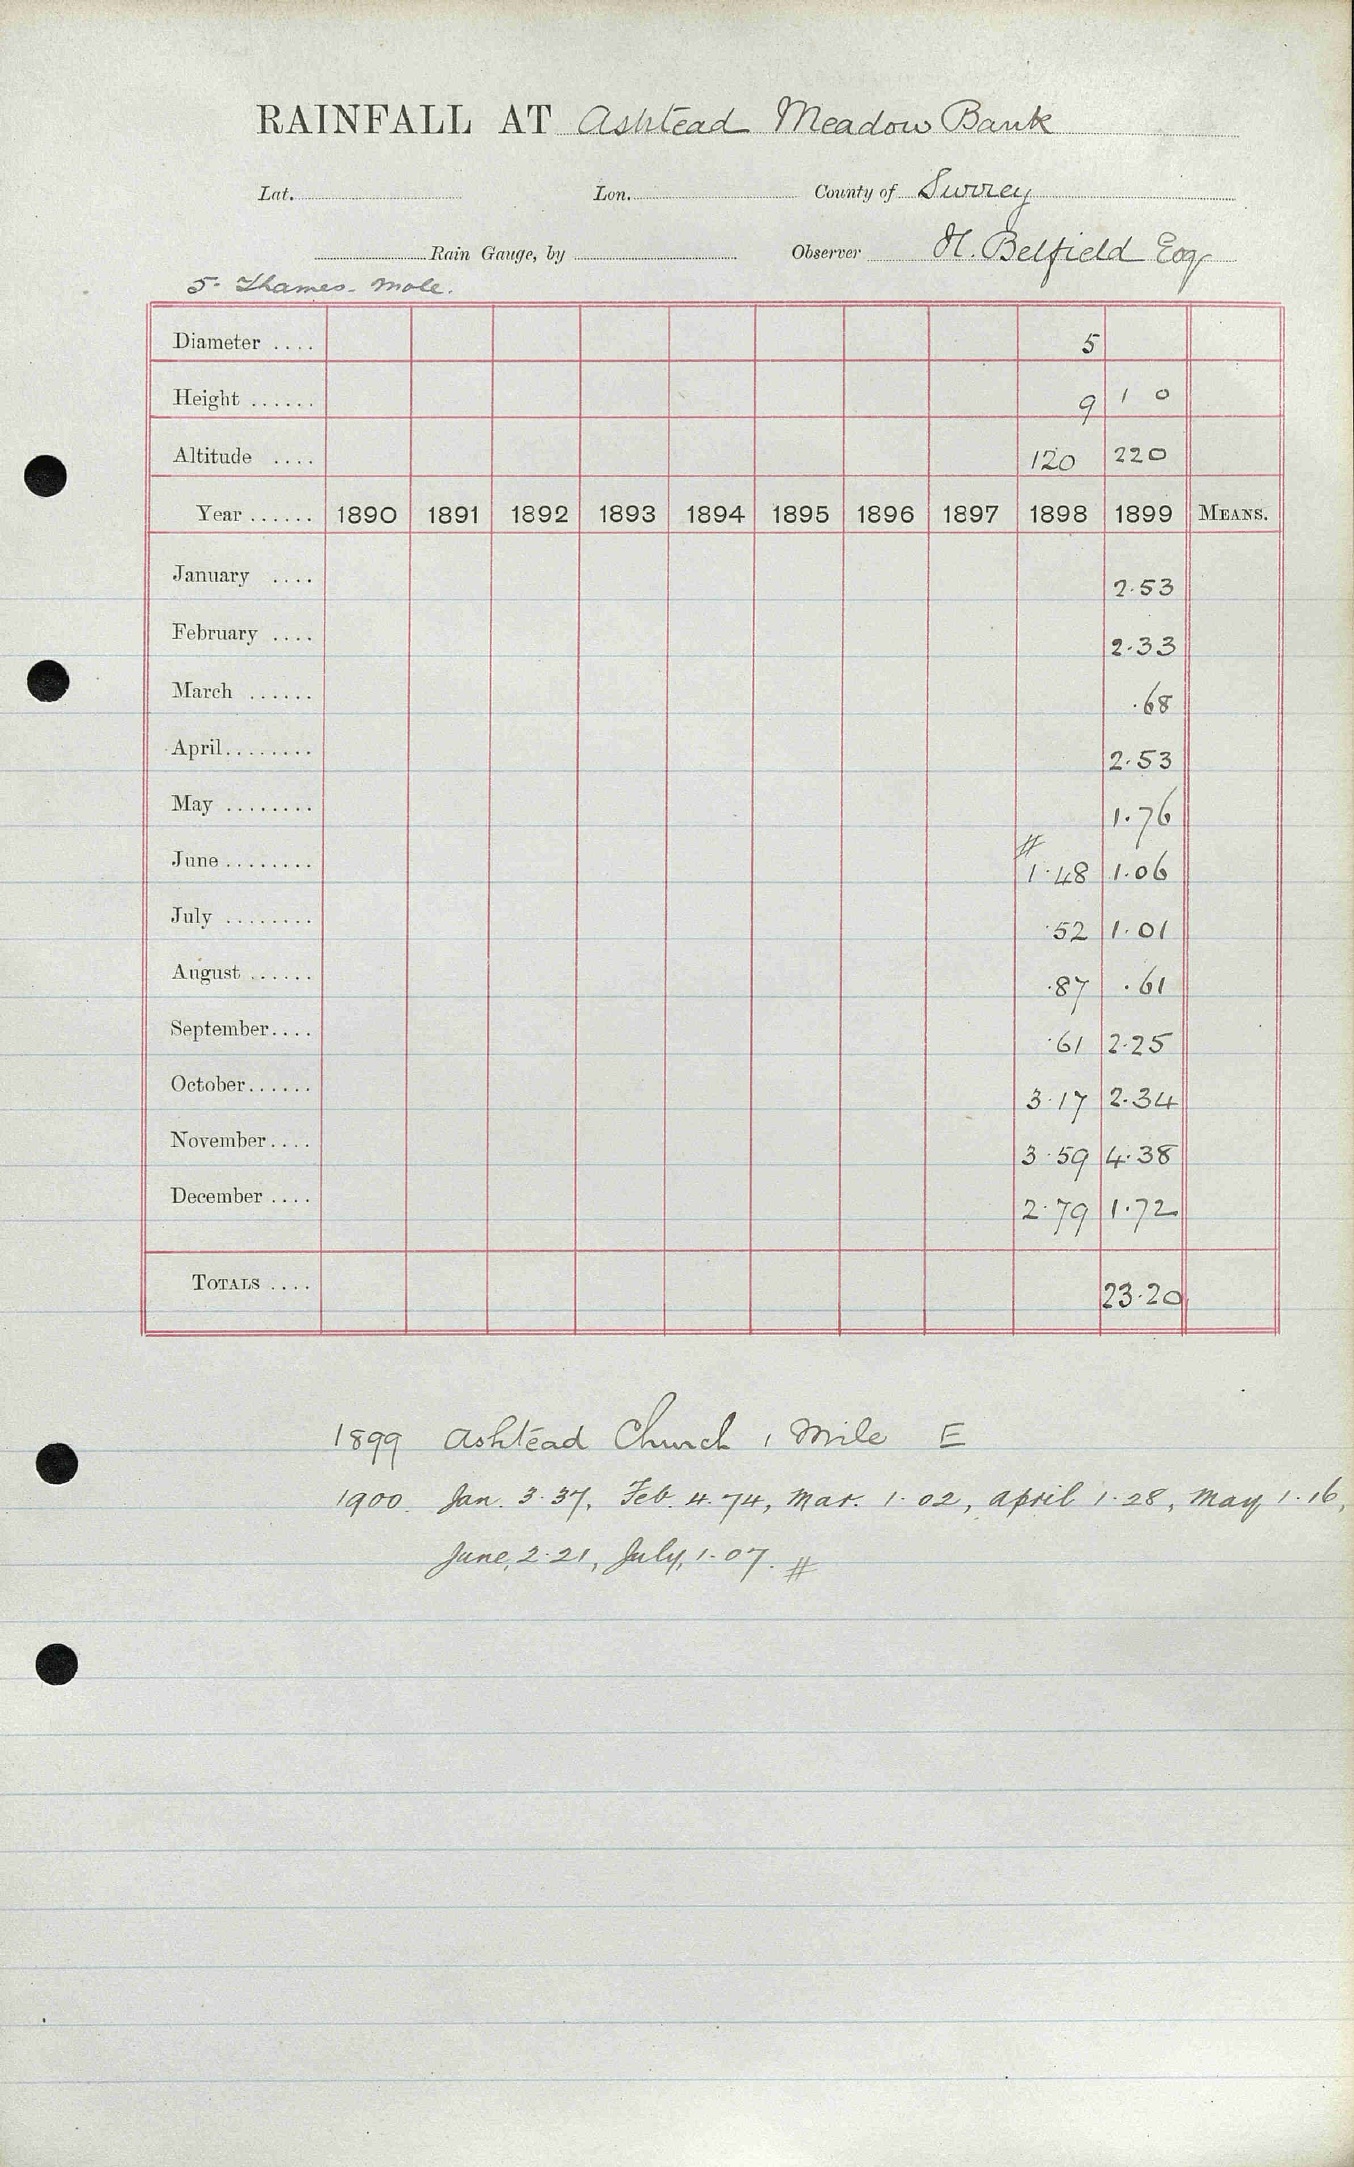 RAINFALL AT Ashtead Meadow Bank
Lat. Lon. County of Surrey
Rain Gauge, by Observer H. Belfield Esq
5. Thames - Mole.
Diameter .... 5
Height ...... 9 1 0
Altitude .... 120 220
Year ...... 1890 1891 1892 1893 1894 1895 1896 1897 1898 1899 MEANS.
January .... 2.53
February .... 2.33
March ...... .68
April ........ 2.53
May ........ 1.76
#
June ........ 1.48 1.06
July ........ .52 1.01
August ...... .87 .61
September .... .61 2.25
October ...... 3.17 2.34
November .... 3.59 4.38
December .... 2.79 1.72
TOTALS .... 23.20
1899 Ashtead Church 1 Mile E
1900. Jan. 3.37, Feb. 4.74, Mar. 1.02, April 1.28, May 1.16,
June, 2.21, July, 1.07. #